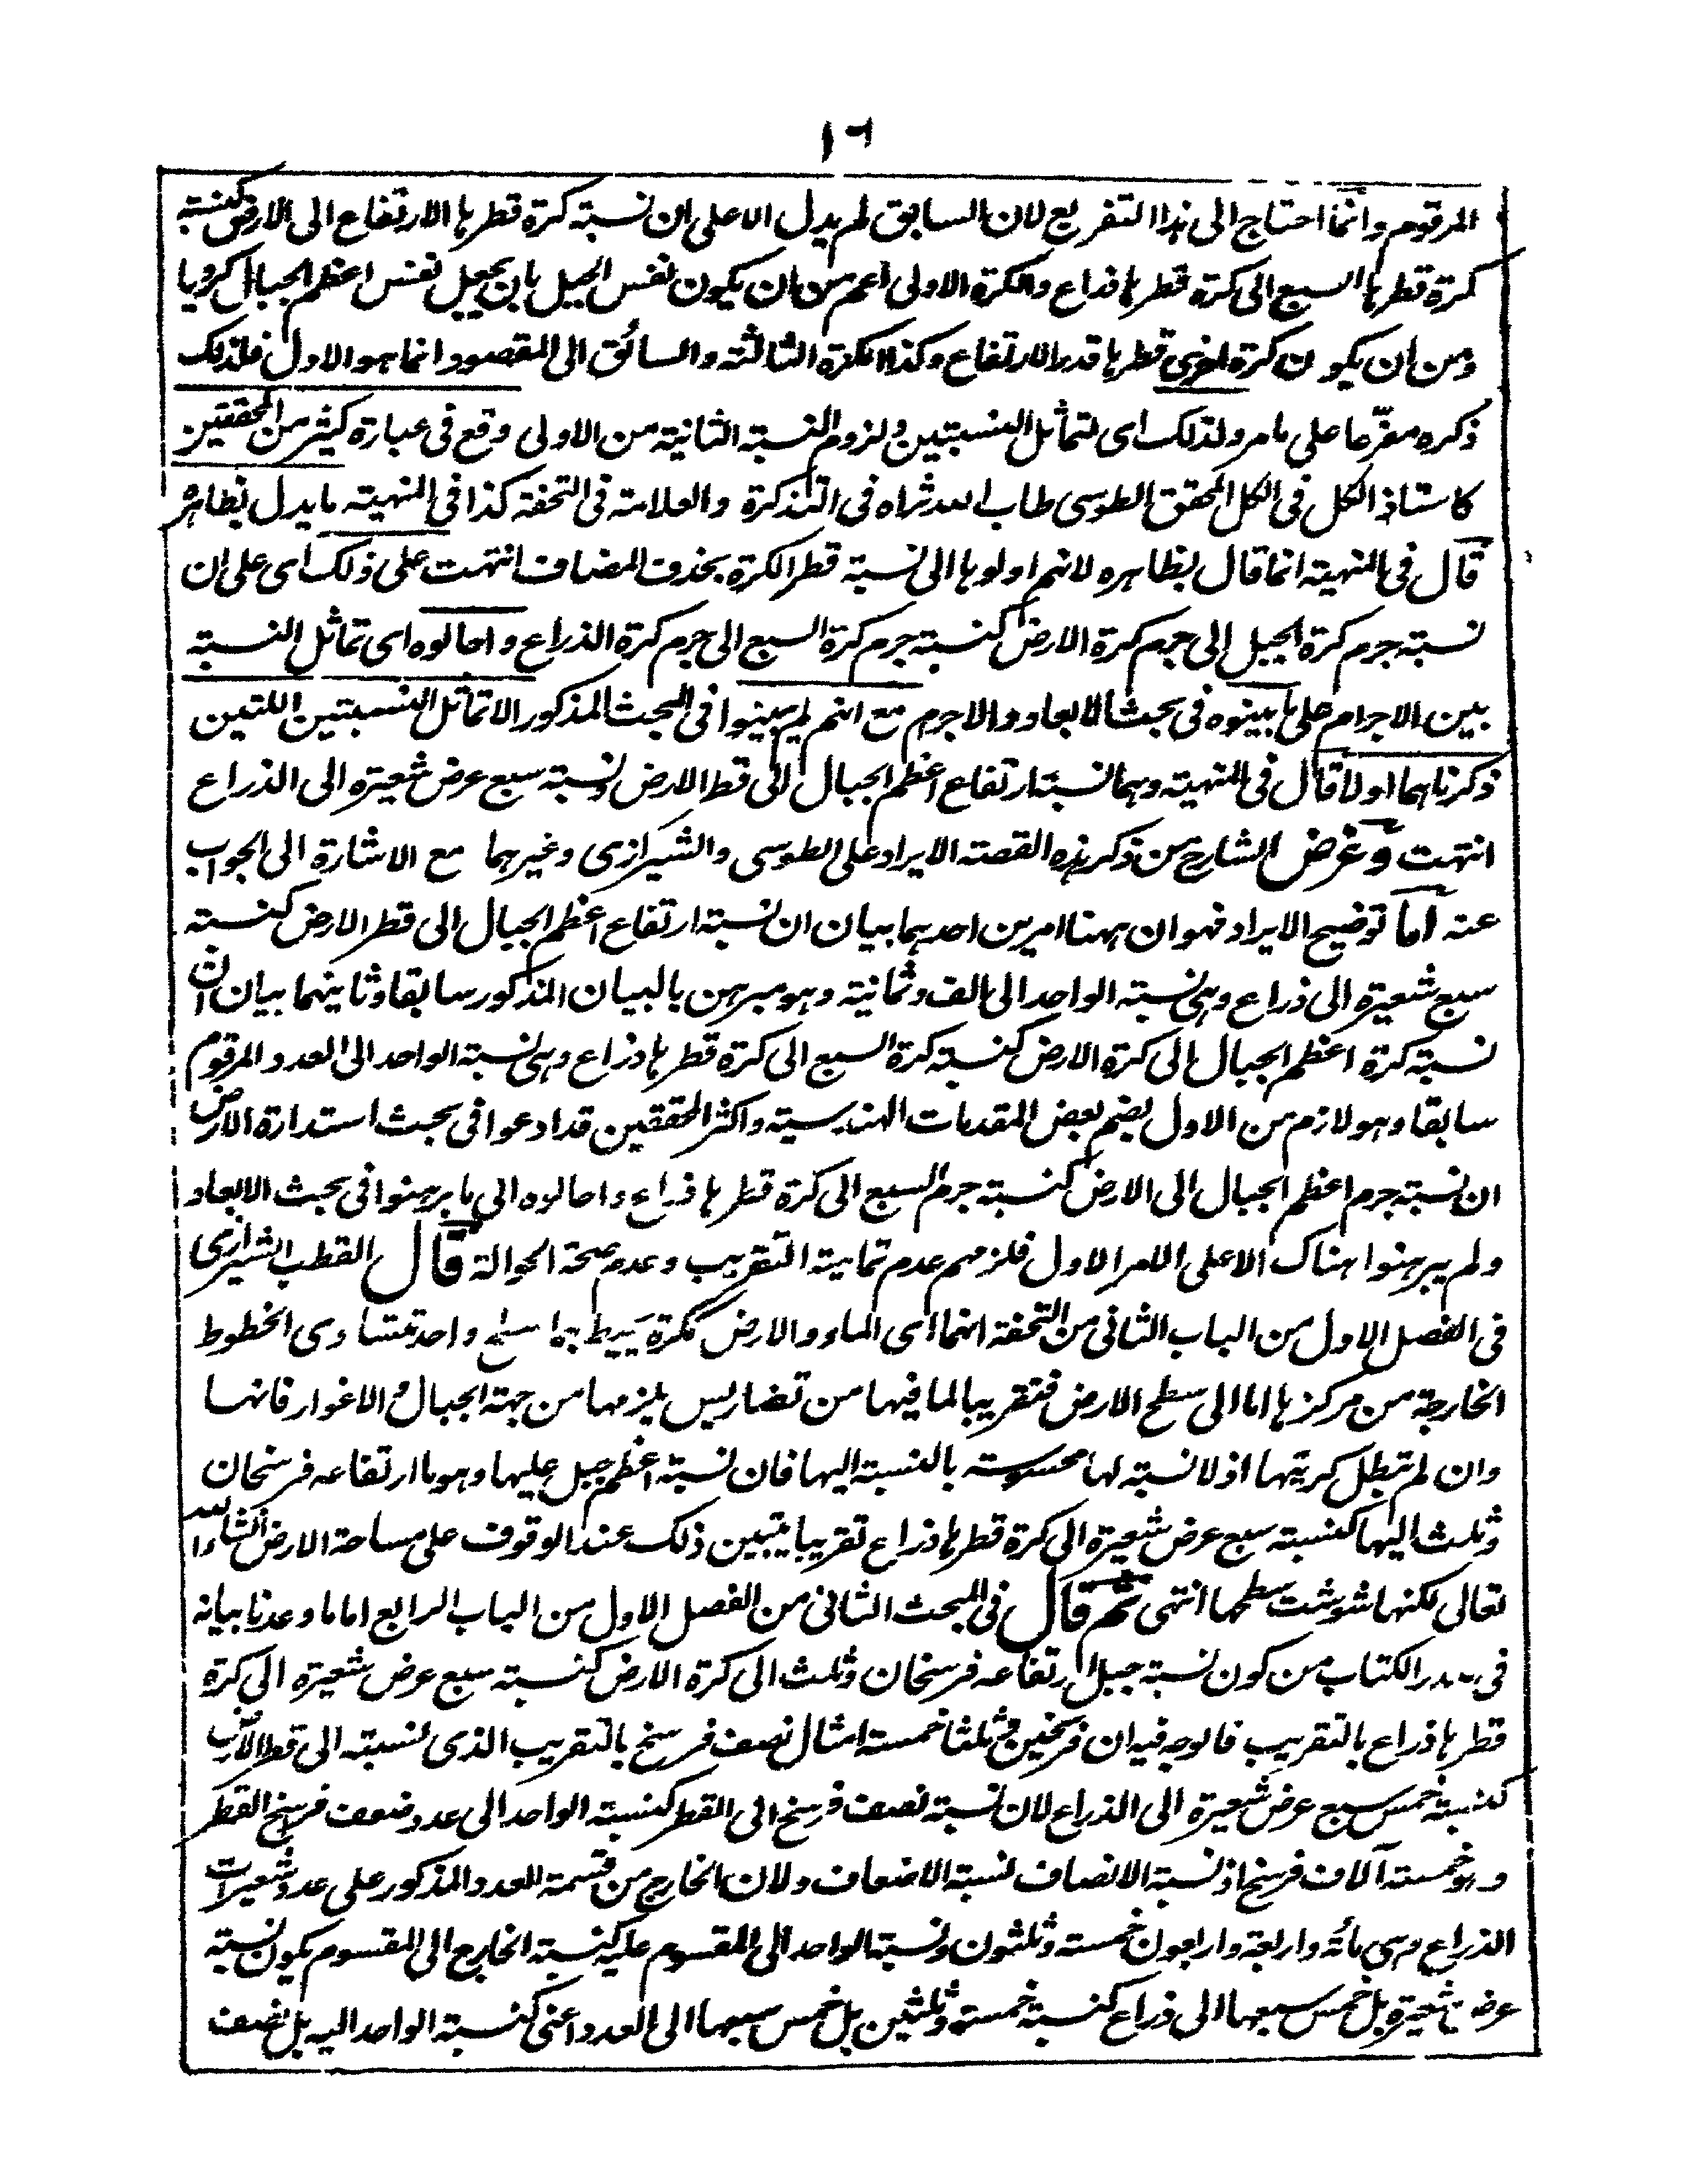 ١٦
المرقوم وانما احتاج الى هذا التفريع لان السابق لم يدل الا على ان نسبة كرة قطرها الارتفاع الى الارض كنسبة
كرة قطرها السبع الى كرة قطرها ذراع والكرة الاولى اعم من ان يكون نفس الجبل بان يجعل نفس اعظم الجبال كرويا
ومن ان يكون كرة اخرى قطرها قدر الارتفاع وكذا الكرة الثالثة والسائق الى المقصود انما هو الاول فلذلك
ذكره مفرعا على ما مر ولذلك اى لتماثل النسبتين ولزوم النسبة الثانية من الاولى وقع فى عبارة كثير من المحققين
كاستاذ الكل فى الكل المحقق الطوسى طاب الله ثراه فى التذكرة والعلامة فى التحفة كذا فى المنهية ما يدل بظاهره
قال فى المنهية انما قال بظاهره لانهم اولوها الى نسبة قطر الكرة بحذف المضاف انتهت على ذلك اى على ان
نسبة جرم كرة الجبل الى جرم كرة الارض كنسبة جرم كرة السبع الى جرم كرة الذراع واحالوه اى تماثل النسبة
بين الاجرام على ما بينوه فى بحث الابعاد والاجرم مع انهم لم يبينوا فى المبحث المذكور الا تماثل النسبتين اللتين
ذكرناهما اولا قال فى المنهية وهما نسبتا ارتفاع اعظم الجبال الى قطر الارض ونسبة سبع عرض شعيرة الى الذراع
انتهت وغرض الشارح من ذكر هذه القصة الايراد على الطوسى والشيرازى وغيرهما مع الاشارة الى الجواب
عنه اما توضيح الايراد فهو ان ههنا امرين احدهما بيان ان نسبة ارتفاع اعظم الجبال الى قطر الارض كنسبة
سبع شعيرة الى ذراع وهى نسبة الواحد الى الف وثمانية وهو مبرهن بالبيان المذكور سابقا وثانيهما بيان ان
نسبة كرة اعظم الجبال الى كرة الارض كنسبة كرة السبع الى كرة قطرها ذراع وهى نسبة الواحد الى العدد المرقوم
سابقا وهو لازم من الاول بضم بعض المقدمات الهندسية واكثر المحققين قد ادعوا فى بحث استدارة الارض
ان نسبة جرم اعظم الجبال الى الارض كنسبة جرم السبع الى كرة قطرها ذراع واحالوه الى ما برهنوا فى بحث الابعاد
ولم يبرهنوا هناك الا على الامر الاول فلزمهم عدم تمامية التقريب وعدم صحة الحوالة قال القطب الشيرازى
فى الفصل الاول من الباب الثانى من التحفة انهما اى الماء والارض ككرة يحيط بهما سطح واحد تتساوى الخطوط
الخارجة من مركزها اما الى سطح الارض فتقريبا لما فيها من تضاريس يلزمها من جهة الجبال والاغوار فانها
وان لم تبطل كريتها اذ لا نسبة لها محسوسة بالنسبة اليها فان نسبة اعظم جبل عليها وهو ما ارتفاعه فرسخان
وثلث اليها كنسبة سبع عرض شعيرة الى كرة قطرها ذراع تقريبا يتبين ذلك عند الوقوف على مساحة الارض ان شاء الله
تعالى لكنها شوشت سطحها انتهى ثم قال فى المبحث الثانى من الفصل الاول من الباب الرابع اما ما وعدنا بيانه
فى صدر الكتاب من كون نسبة جبل ارتفاعه فرسخان وثلث الى كرة الارض كنسبة سبع عرض شعيرة الى كرة
قطرها ذراع بالتقريب فالوجه فيه ان فرسخين وثلثا خمسة امثال نصف فرسخ بالتقريب الذى نسبته الى قطر الارض
كنسبة خمس سبع عرض شعيرة الى الذراع لان نسبة نصف فرسخ الى القطر كنسبة الواحد الى عدد ضعف فرسخ القطر
وهو خمسة آلاف فرسخ اذ نسبة الانصاف نسبة الاضعاف ولان الخارج من قسمة العدد المذكور على عدد شعيرات
الذراع وهى مائة واربعة واربعون خمسة وثلثون ونسبة الواحد الى المقسوم عليه كنسبة الخارج الى المقسوم يكون نسبة
عرض شعيرة بل خمس سبعها الى ذراع كنسبة خمسة وثلثين بل خمس سبعها الى العدد اعنى كنسبة الواحد اليه بل نصف